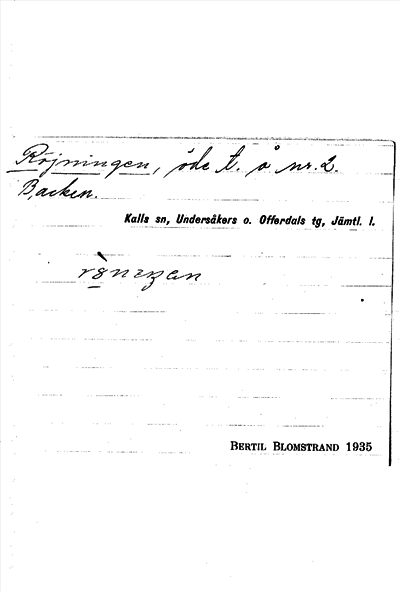 Röjningen, öde t. å nr. 2.
Backen.
Kalls sn, Undersåkers o. Offerdals tg, Jämtl. l.
BERTIL BLOMSTRAND 1935